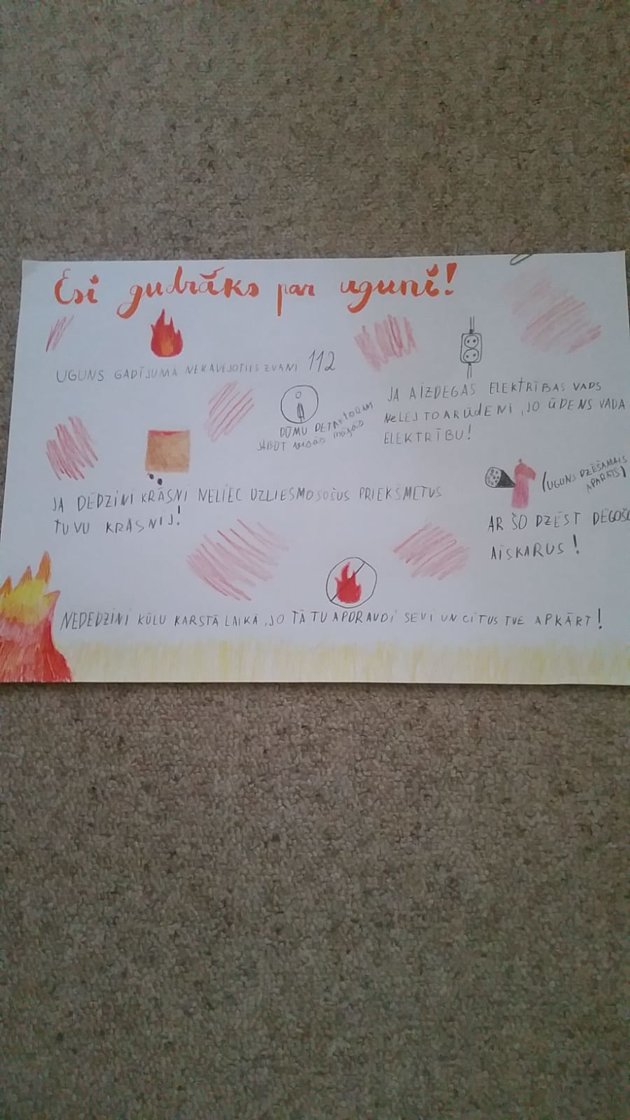 Esi gudrāks par uguni!
UGUNS GADĪJUMĀ NEKAVĒJOTIES ZVANI 112
DŪMU DETAKTORAM
JĀBŪT VISĀS MĀJĀS
JA AIZDEGAS ELEKTRĪBAS VADS
NELEJ TO AR ŪDENI, JO ŪDENS VADA
ELEKTRĪBU!
JA DEDZINI KRĀSNI NELIEC UZLIESMOJOŠUS PRIEKŠMETUS
TUVU KRĀSNIJ!
(UGUNS DZĒŠAMAIS
APARĀTS)
AR ŠO DZĒST DEGOŠ
AISKARUS!
NEDEDZINI KŪLU KARSTĀ LAIKĀ, JO TĀ TU APDRAUDI SEVI UN CITUS TEV APKĀRT!